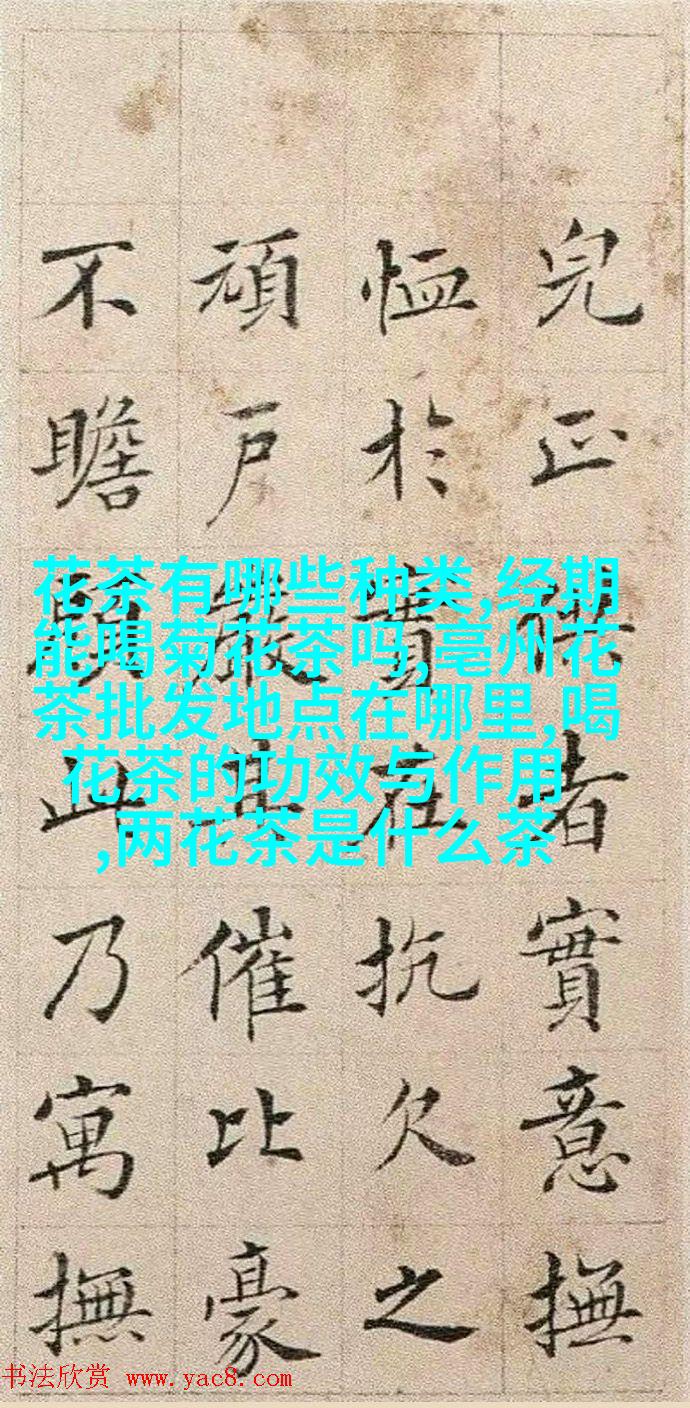 完正供者實意撫
恤於實在抗欠之
頑戶嚴其催比豪
不瞻顧此乃寓撫
花茶有哪些种类,经期
能喝菊花茶吗,亳州花
茶批发地点在哪里,喝
花茶的功效与作用
,两花茶是什么茶
书法欣赏 www.yac8.com